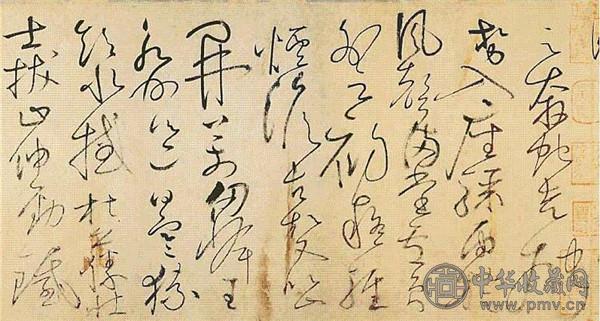 云奔蛇走虺
勢入座驟雨旋
風聲滿堂盧員
外云初疑輕
煙澹古松又似山
開萬仞峰王
永州邕曰寒猿
飲水撼枯藤壯
士拔山伸勁鐵
中华收藏网
www.pmv.cn